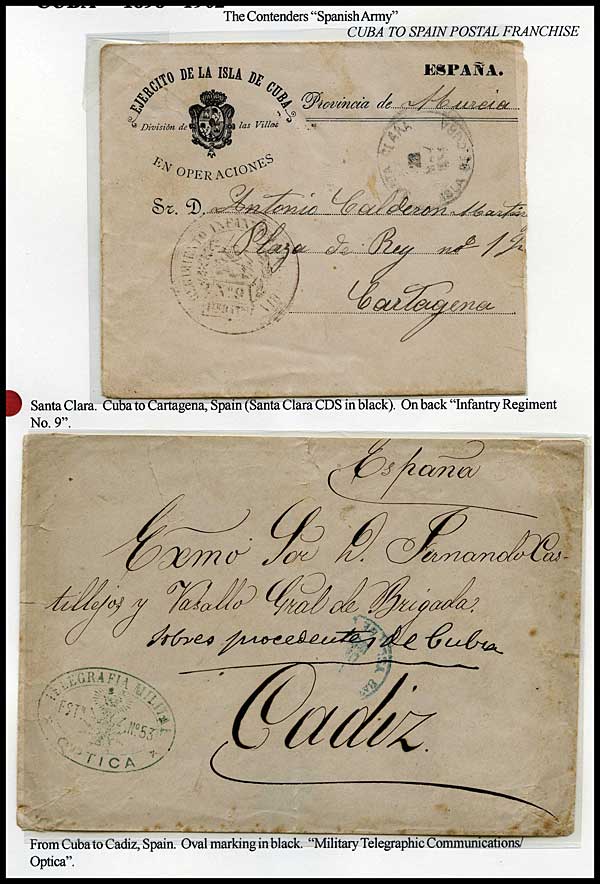 The Contenders “Spanish Army”
CUBA TO SPAIN POSTAL FRANCHISE
EJERCITO DE LA ISLA DE CUBA
División de las Villas
EN OPERACIONES
ESPAÑA.
Provincia de Murcia
SANTA CLARA
ISLA DE CUBA
Sr. D. Antonio Calderon Martinez
Plaza de Rey nº 1
Cartagena
REGIMIENTO INFANTERIA
Nº 9
Santa Clara. Cuba to Cartagena, Spain (Santa Clara CDS in black). On back “Infantry Regiment
No. 9”.
España
Exmo Sor D. Fernando Cas-
tillejos y Vasallo Gral de Brigada.
Sobres procedentes de Cuba
Cadiz.
TELEGRAFIA MILITAR
EST Nº 53
OPTICA
From Cuba to Cadiz, Spain. Oval marking in black. “Military Telegraphic Communications/
Optica”.